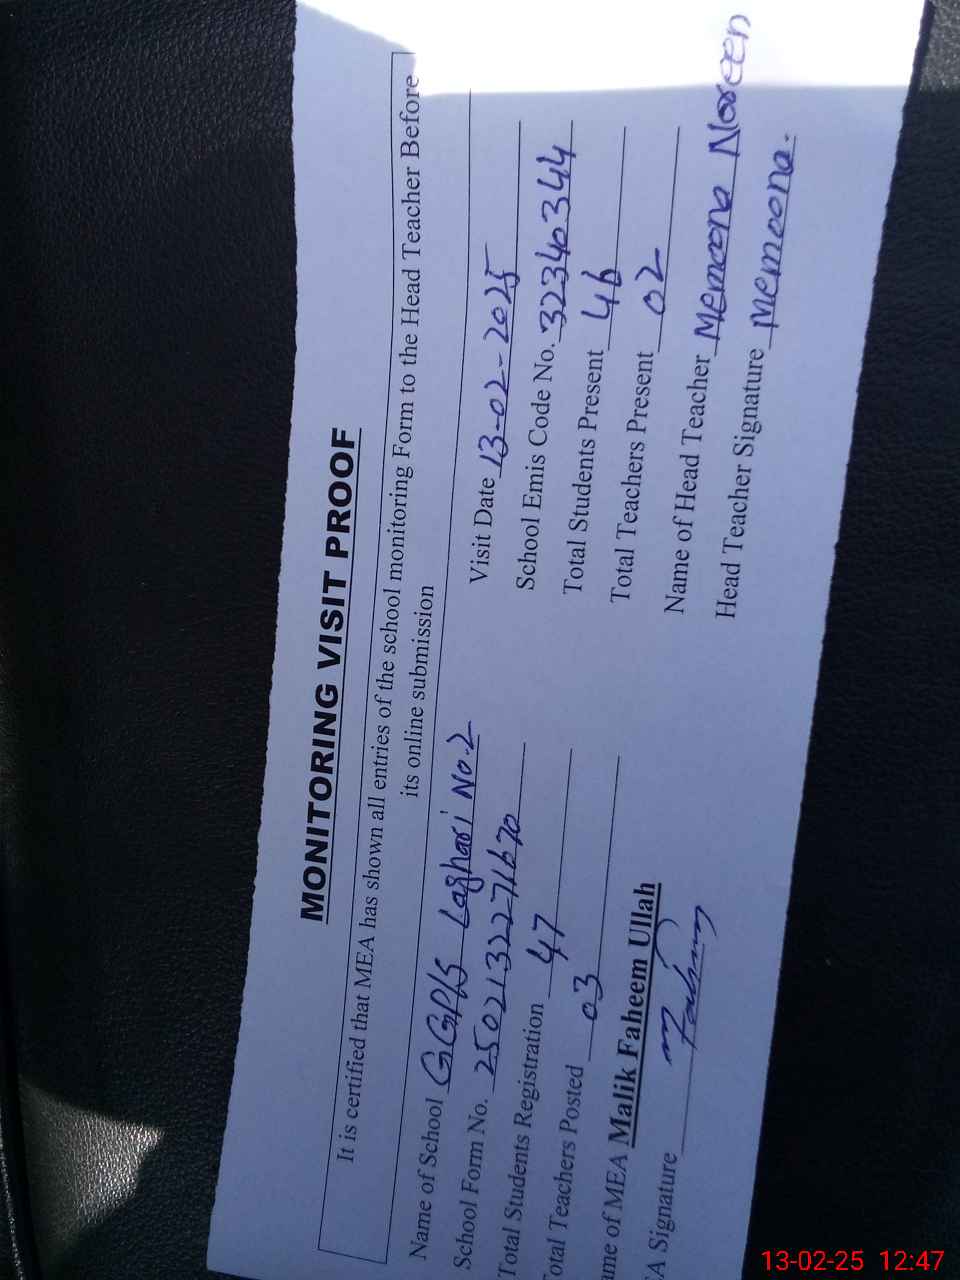 MONITORING VISIT PROOF
It is certified that MEA has shown all entries of the school monitoring Form to the Head Teacher Before
its online submission
Name of School GGPS Laghari No.2
Visit Date 13-02-2025
School Form No. 2502132271670
School Emis Code No. 32340344
Total Students Registration 47
Total Students Present 46
Total Teachers Posted 03
Total Teachers Present 02
ame of MEA Malik Faheem Ullah
Name of Head Teacher Memoona Noreen
A Signature Faheem
Head Teacher Signature Memoona.
13-02-25 12:47